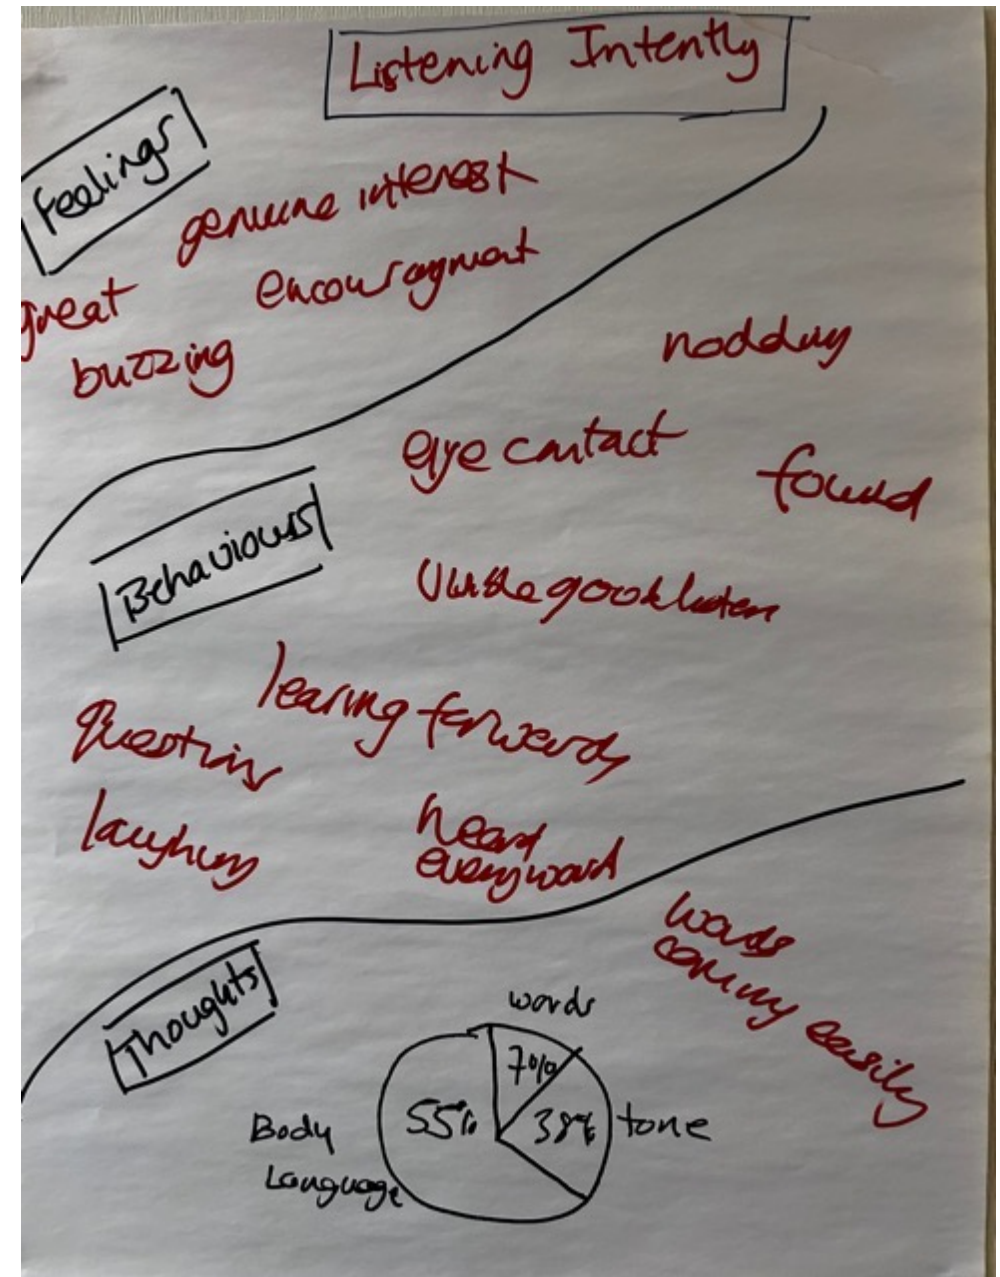 Listening Intently
Feelings
genuine interest
great
encouragment
buzzing
nodding
eye contact
Behaviours
leaning forwards
questions
laughing
heard
everyword
words
coming easily
Thoughts
words
7%
55%
38%
tone
Body
Language